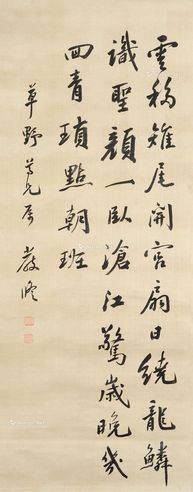 雲移雉尾開宮扇日繞龍鱗
識聖顏一臥滄江驚歲晚幾
回青瑣點朝班
草野尊兄屬 嚴修